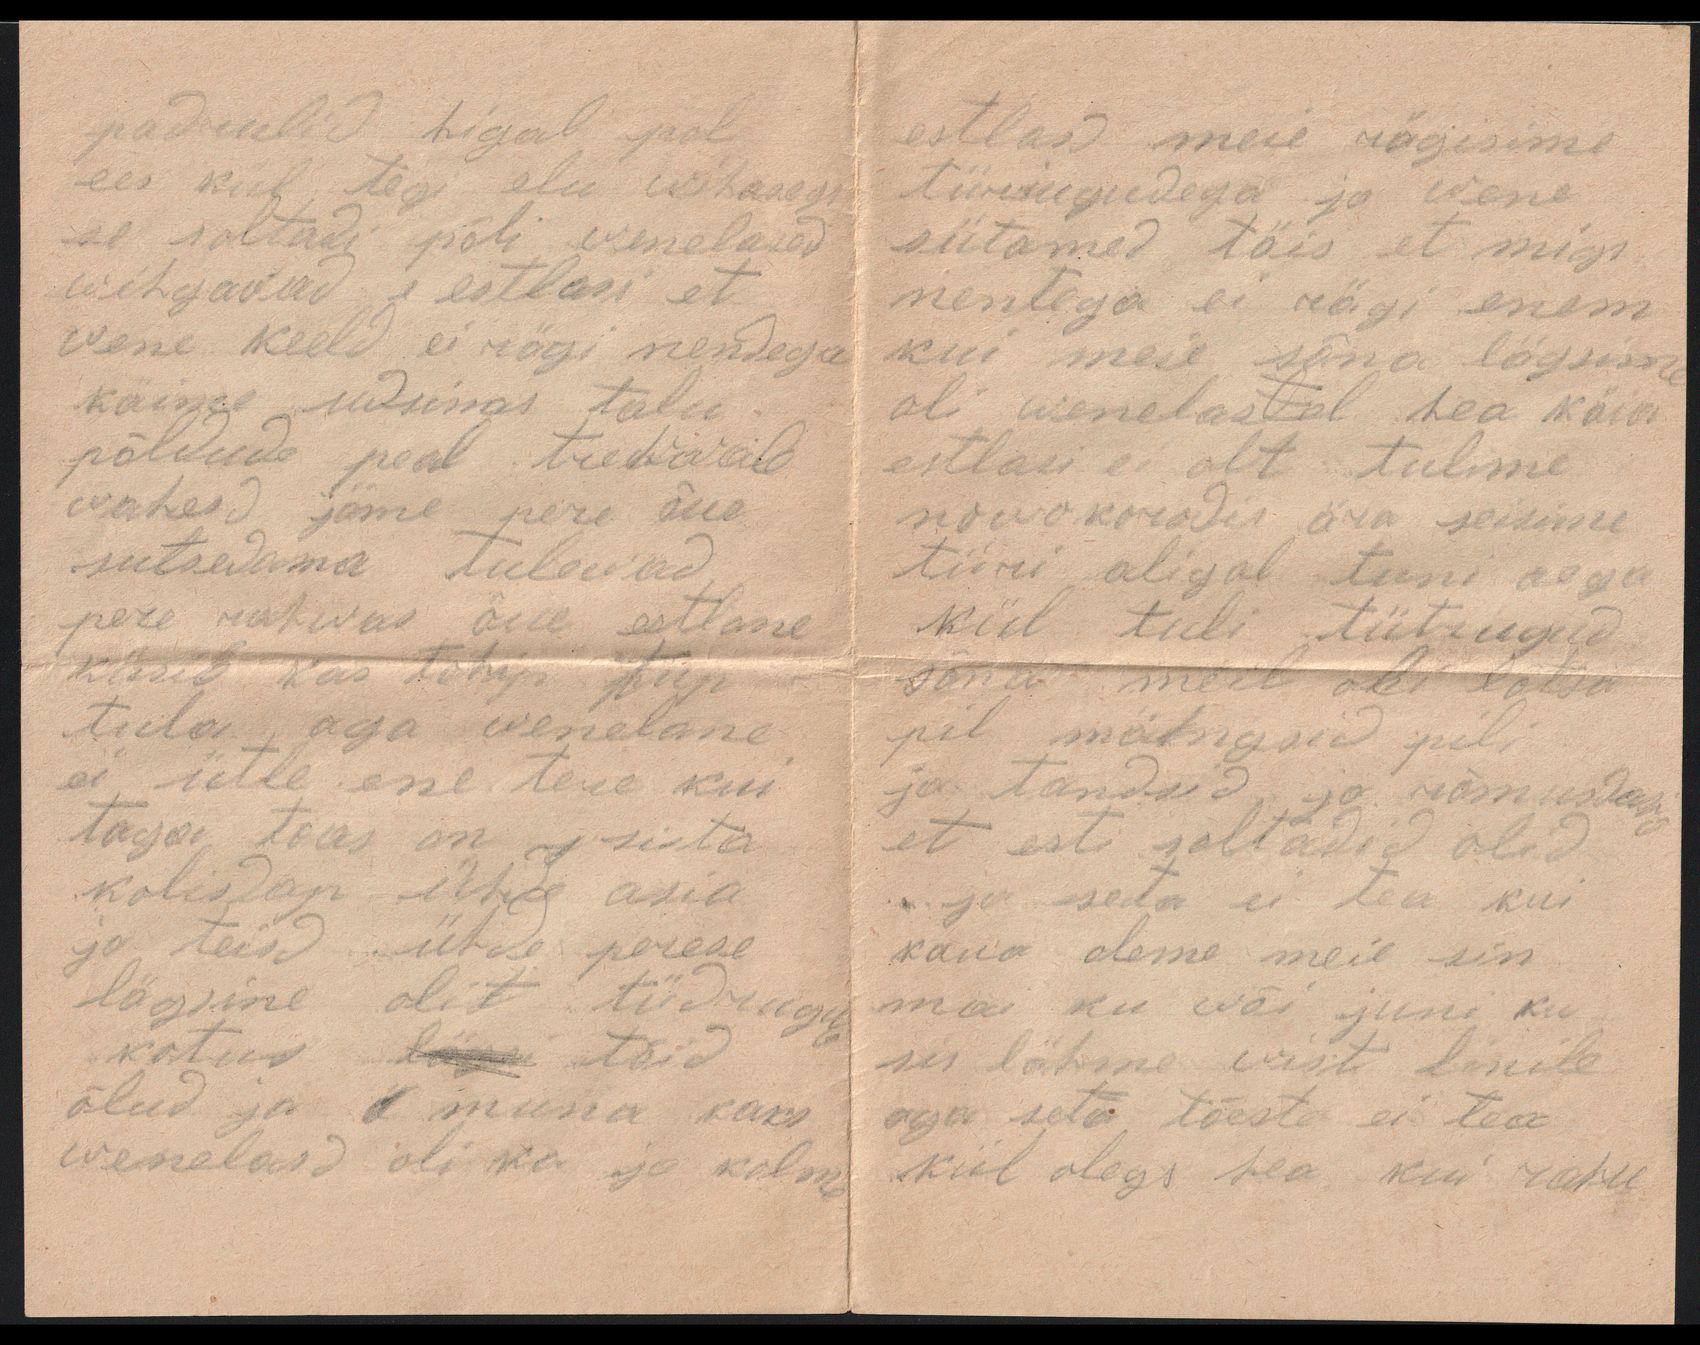 padrulid higal pol
ees kül tegi elu wihasegs
se soltadi põli wenelased
wihgavad estlasi et
wene keeld ei rägi nendega
käime udsinas talu
põldude peal trehwwab
wahesd jäme pere õue
sutsedama tulewad
pere rahwas õue estlane
küsib kas tohip piip
tula aga wenelane
ei ütle ene tere kui
taga toas on ja siita
kolisdap ühde asia
ja teisd ühde perese
lägsine olit tüdrugu
kotus toid
õlud ja muna kaks
wenelasd oli ka ja kolme
estlasd meie rägisime
türrugudega ja wene
sütamed täis et migs
nentega ei rägi enem
kui meie sõna lägsime
oli wenelastel hea käia
estlasi ei olt tulime
nowokorodis ära seisime
türi aligal tuni aega
kül tuli tütrugud
sõna meil oli lotsa
pil mähngsid pili
ja tandsid ja römusdasid
et esti soltadid olid
ja seta ei tea kui
kaua oleme meie sin
mai ku wõi juni ku
sis lähme wist linile
aga seta tõeste ei tea
kül olegs hea kui rahu